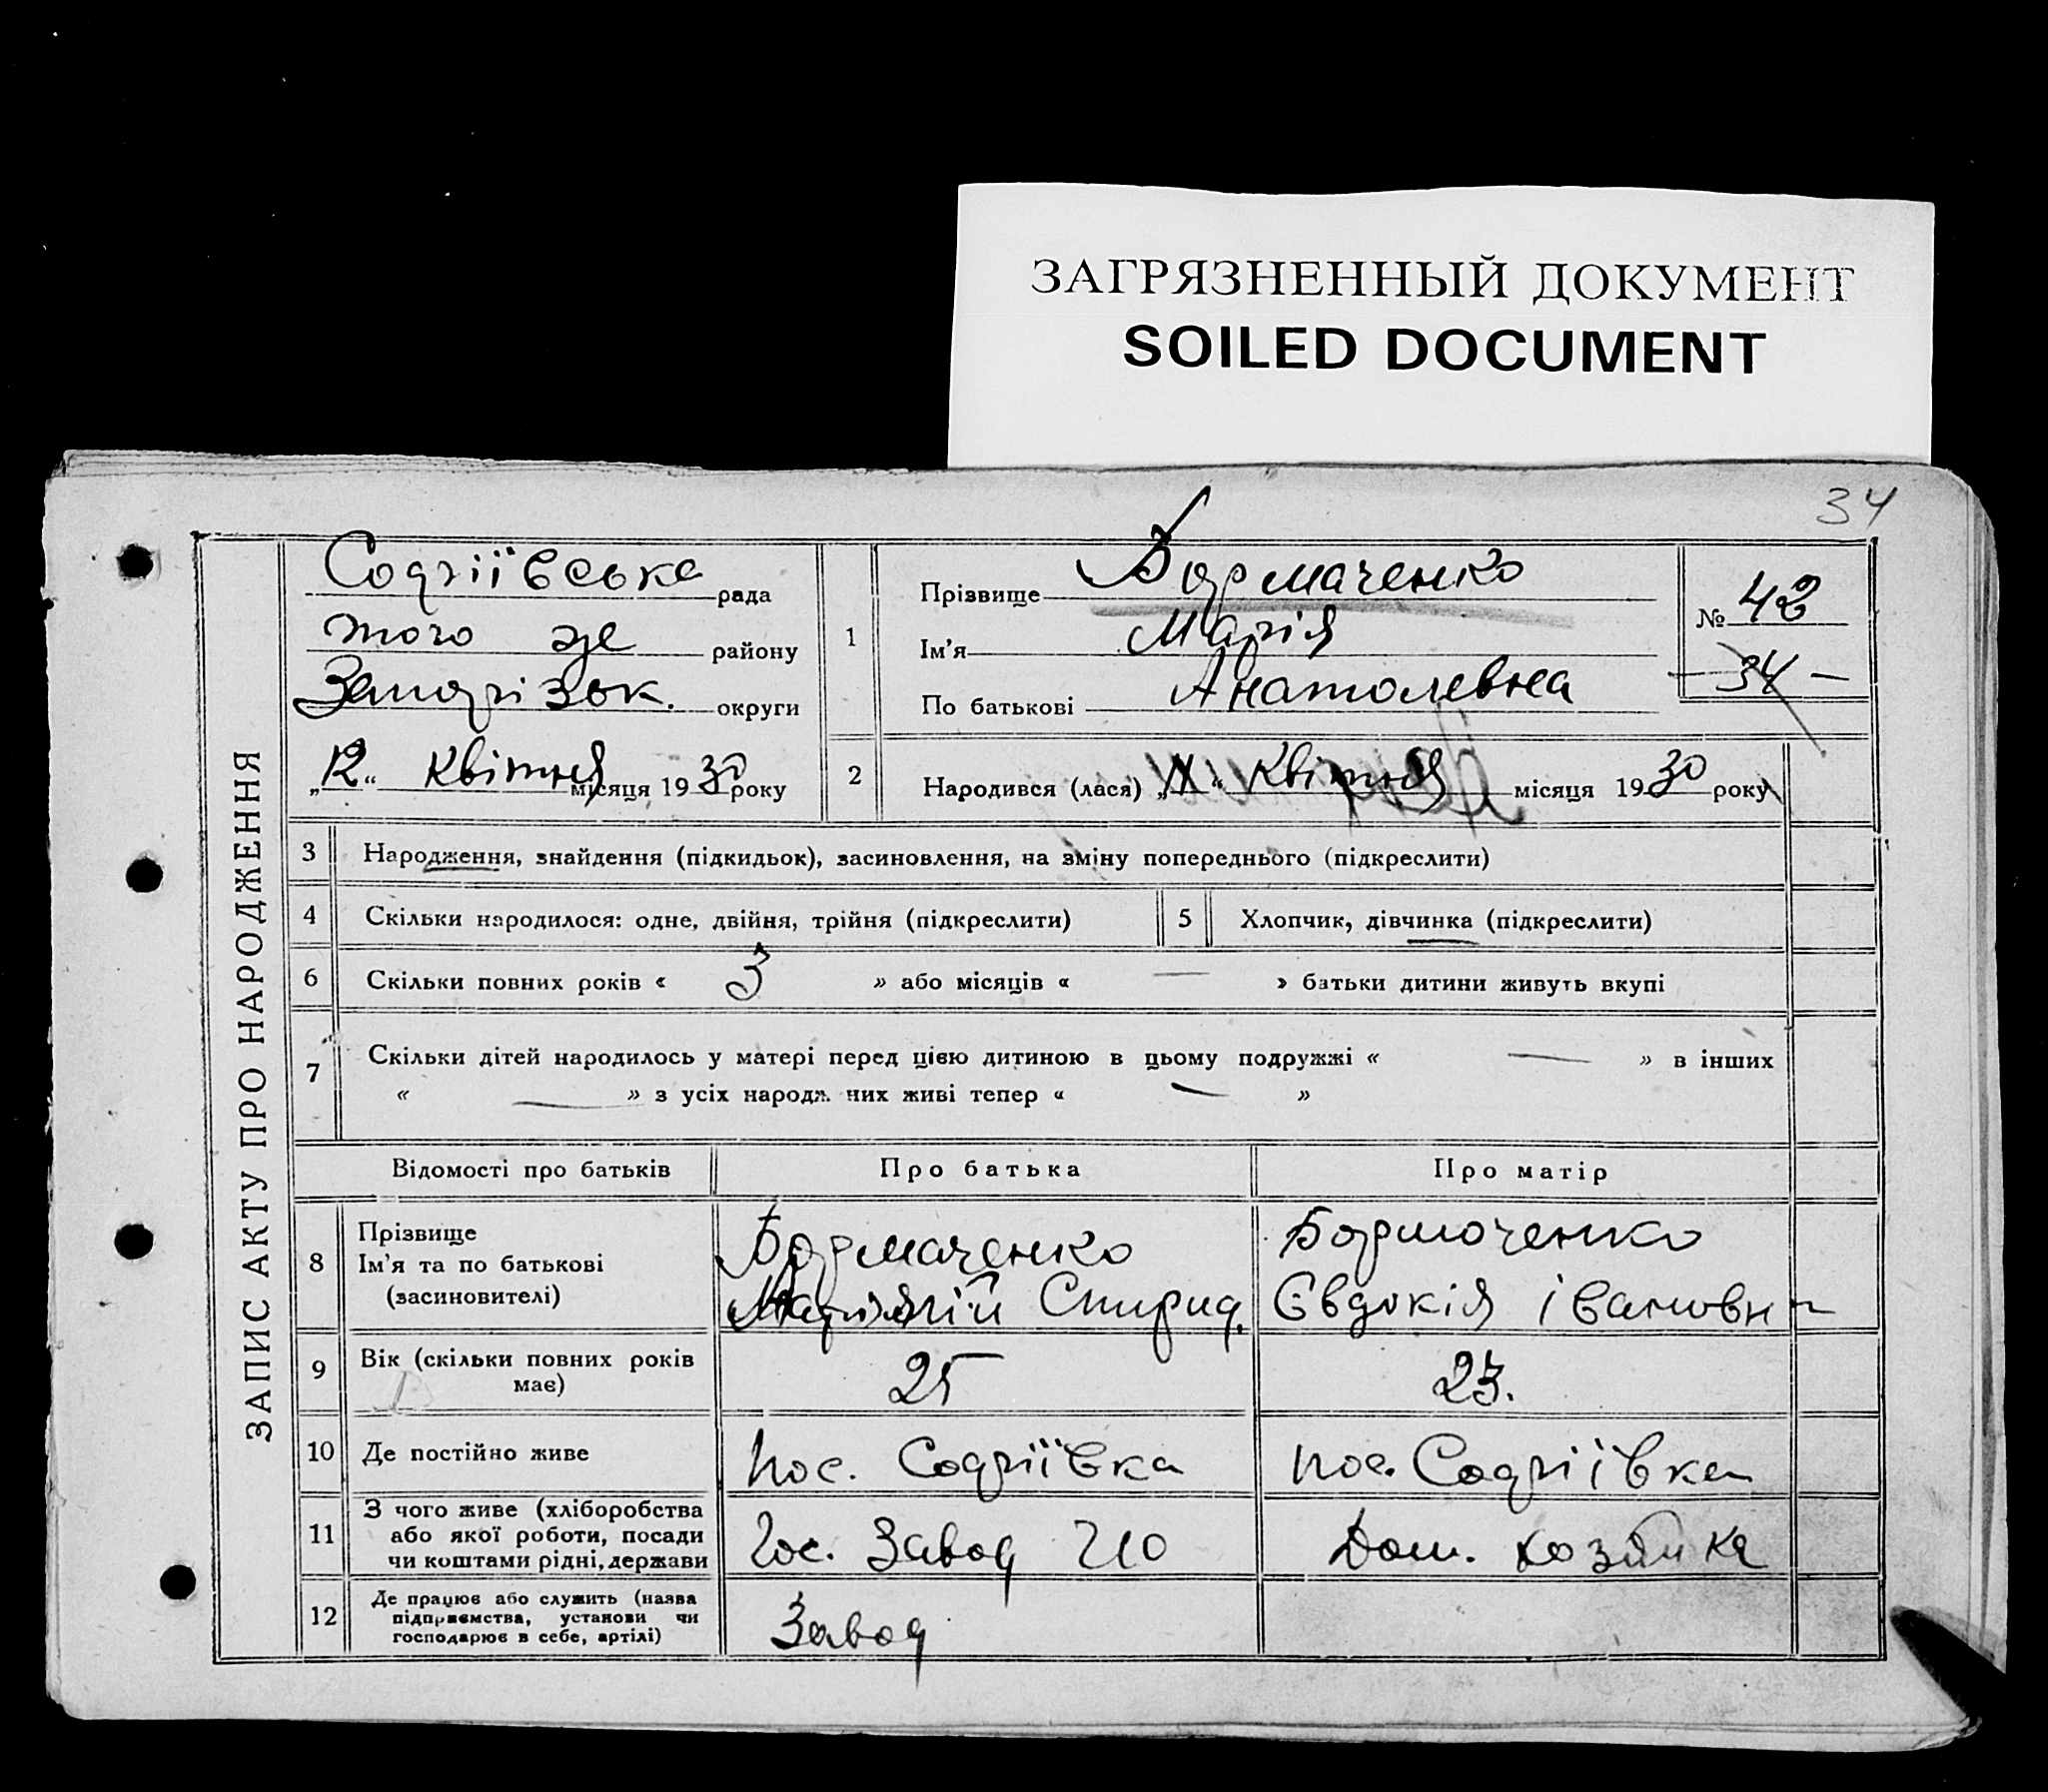 ЗАГРЯЗНЕННЫЙ ДОКУМЕНТ
SOILED DOCUMENT
34
ЗАПИС АКТУ ПРО НАРОДЖЕННЯ
Софіївська рада
того же району
Запорізьк. округи
„12“ квітня місяця 1930 року
1
Прізвище Бормаченко
Ім'я Марія
По батькові Анатолевна
№ 42
34 —
2
Народився (лася) „ “ квітня місяця 1930 року
3 Народження, знайдення (підкидьок), засиновлення, на зміну попереднього (підкреслити)
4 Скільки народилося: одне, двійня, трійня (підкреслити)
5 Хлопчик, дівчинка (підкреслити)
6 Скільки повних років « 3 » або місяців « — » батьки дитини живуть вкупі
7 Скільки дітей народилось у матері перед цією дитиною в цьому подружжі « — » в інших
« — » з усіх народж них живі тепер « — »
Відомості про батьків Про батька Про матір
8 Прізвище
Ім'я та по батькові
(засиновителі)
Бормаченко
Спирид.
Бормоченко
Євдокія Івановн
9 Вік (скільки повних років
має)
25
23.
10 Де постійно живе пос. Софіївка пос. Софіївка
11 З чого живе (хліборобства
або якої роботи, посади
чи коштами рідні, держави
Гос. Завод
Дом. хозяйка
12 Де працює або служить (назва
підприємства, установи чи
господарює в себе, артілі)
Завод